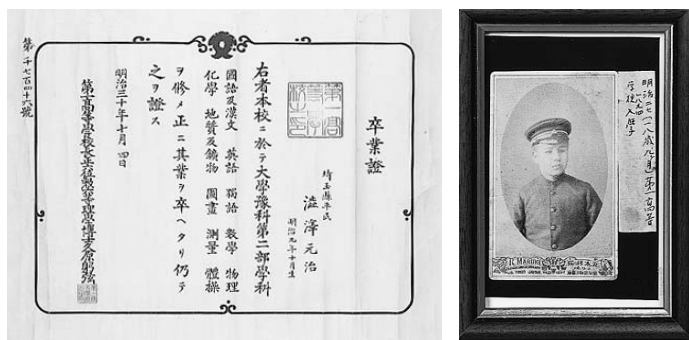 卒業證
埼玉縣平民
澁澤元治
明治九年十月生
右者本校ニ於テ大學豫科第二部學科
國語及漢文 英語 獨語 數學 物理
化學 地質及鑛物 圖畫 測量 體操
ヲ修メ正ニ其業ヲ卒ヘタリ仍テ
之ヲ證ス
明治三十年七月四日
第一高等學校長正 理學博士久原躬弦
第千七百四十六號
明治二七(一八歳九ヶ月)第一高等
一八九四
校入
R. MARUKI